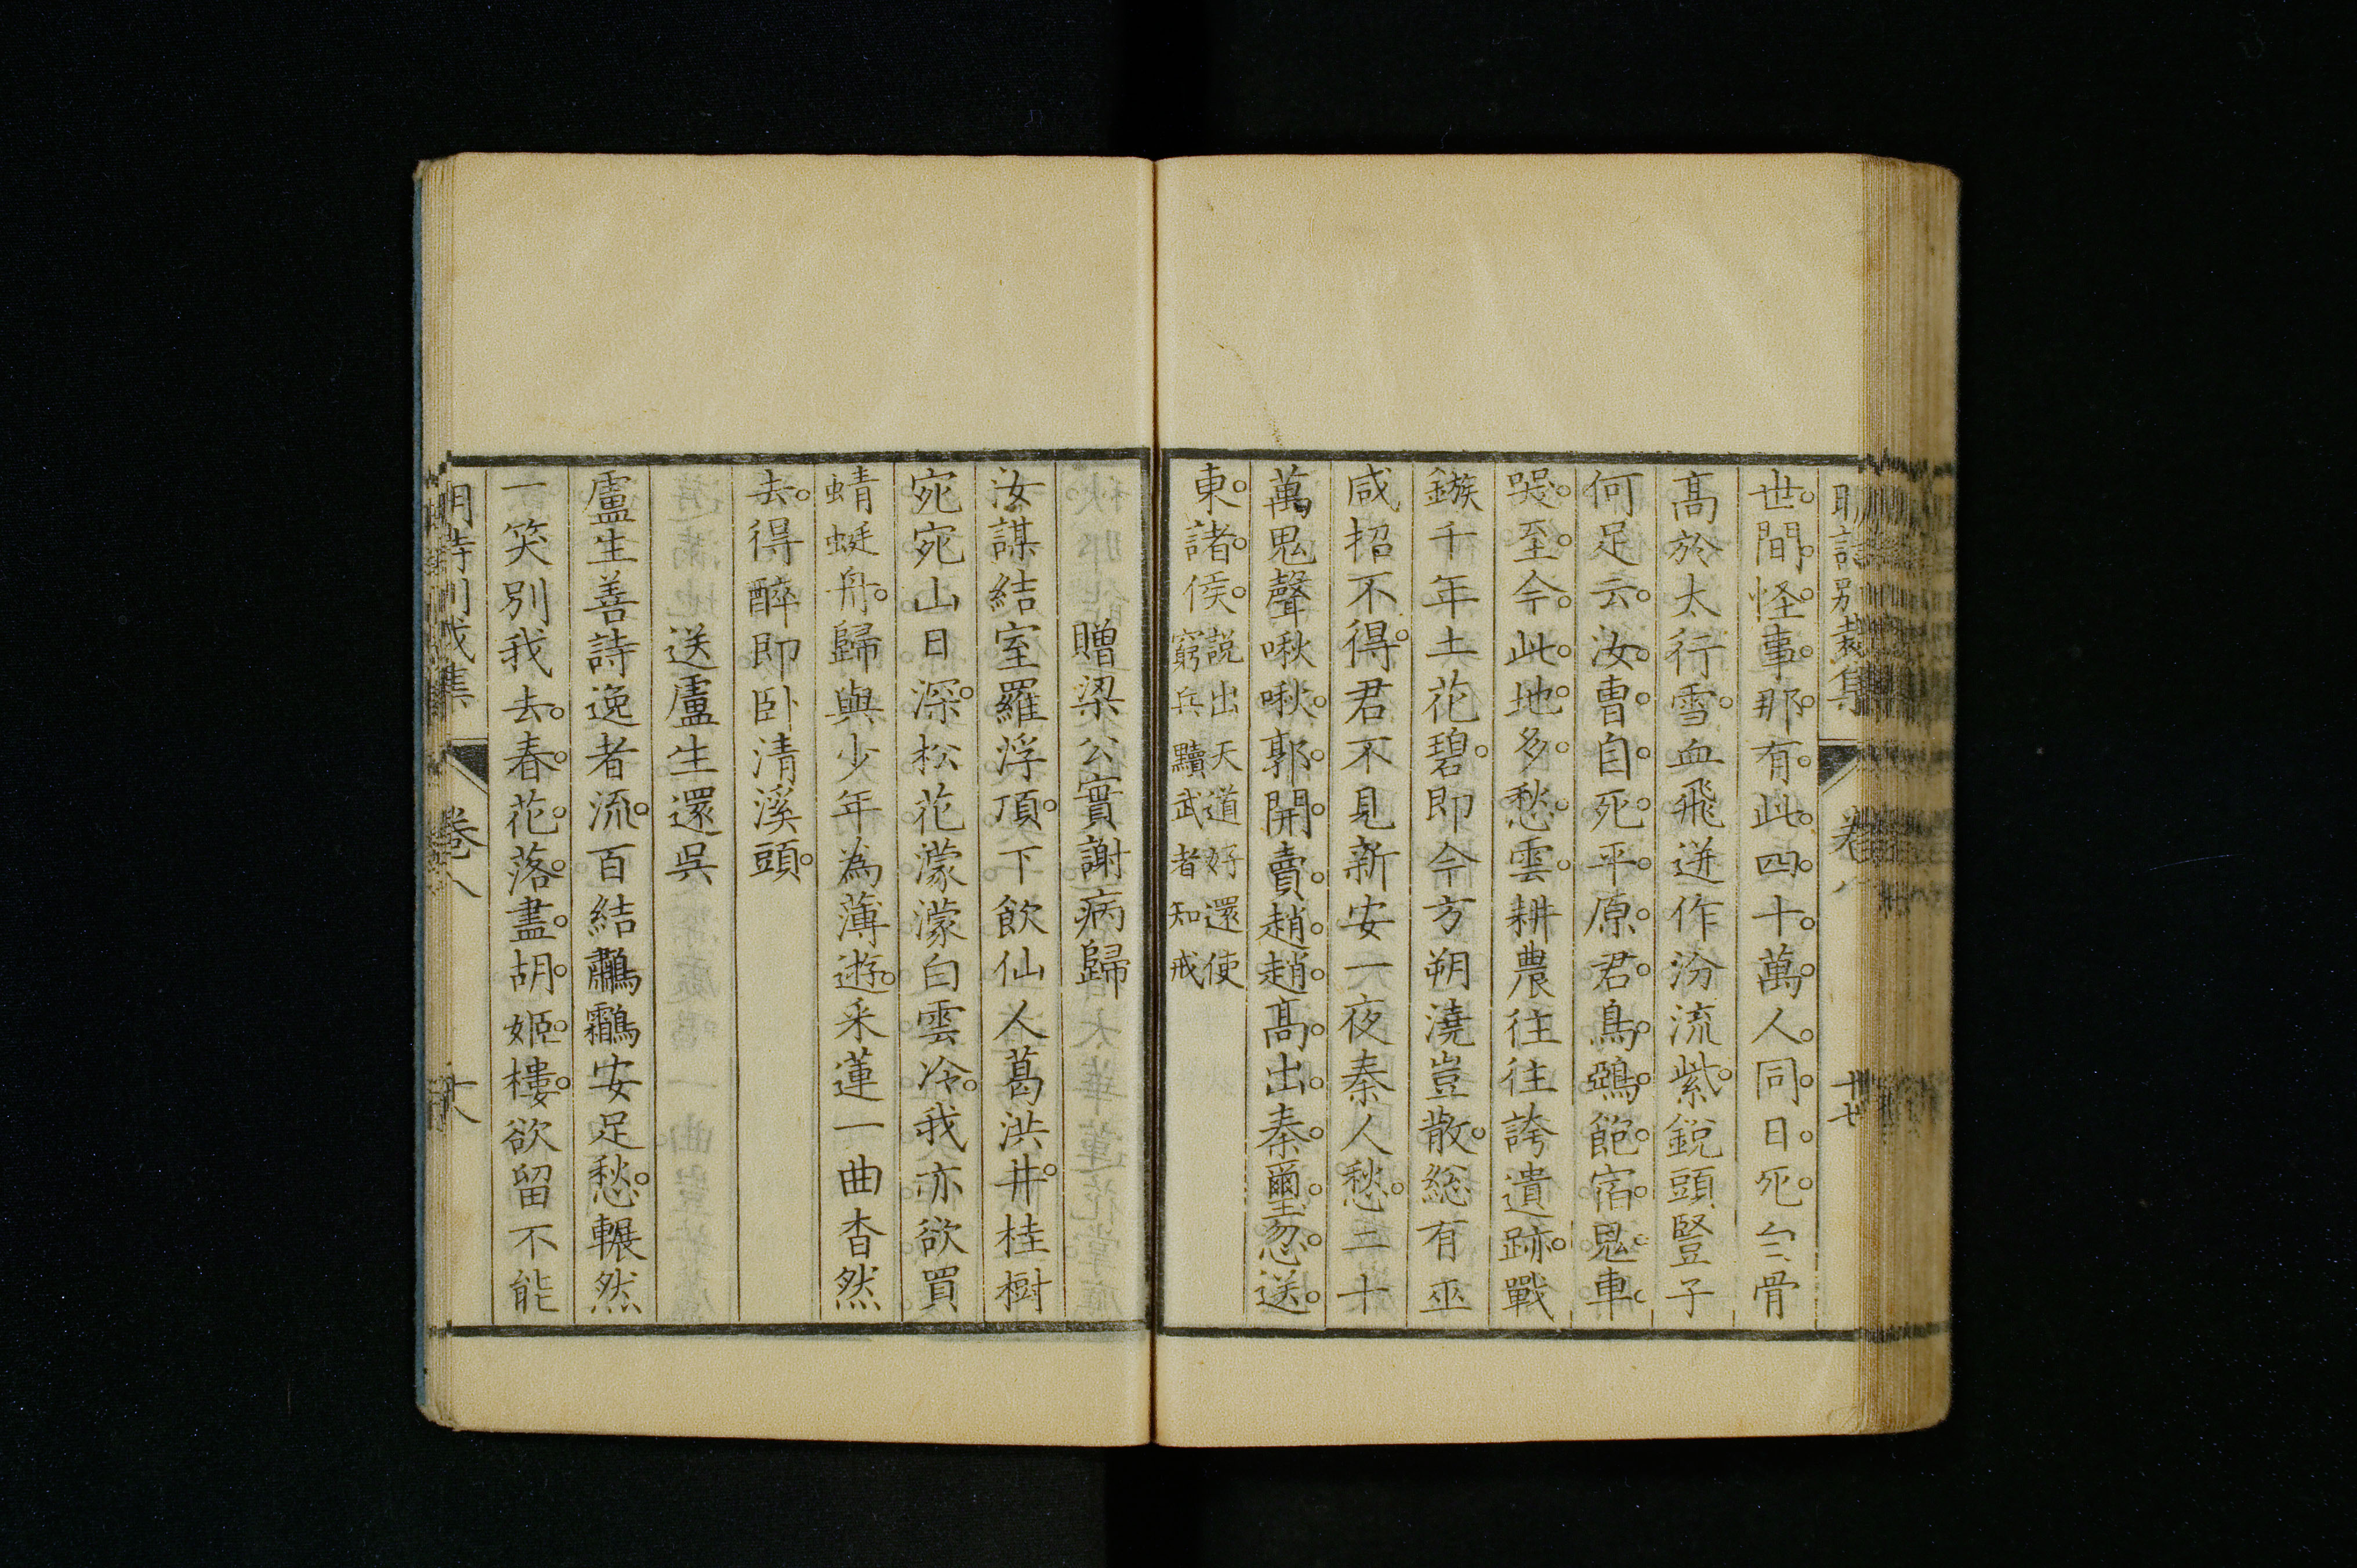 明詩別裁集 卷八 十七
世間怪事那有此四十萬人同日死骨
高於太行雪血飛迸作汾流紫銳頭豎子
何足云汝曹自死平原君鳥鵶飽宿鬼車
哭至今此地多愁雲耕農往往誇遺跡戰
鏃千年土花碧即今方朔澆豈散総有巫
咸招不得君不見新安一夜秦人愁二十
萬鬼聲啾啾郭開賣趙趙高出秦璽忽送
東諸侯
說出天道好還使
窮兵黷武者知戒
贈梁公實謝病歸
汝謀結室羅浮頂下飲仙人葛洪井桂樹
宛宛山日深松花濛濛白雲冷我亦欲買
蜻蜓舟歸與少年為薄遊采蓮一曲杳然
去得醉即卧清溪頭
送盧生還吳
盧生善詩逸者流百結鷫鸘安足愁冁然
一笑別我去春花落盡胡姬樓欲留不能
明詩別裁集 卷八 十八